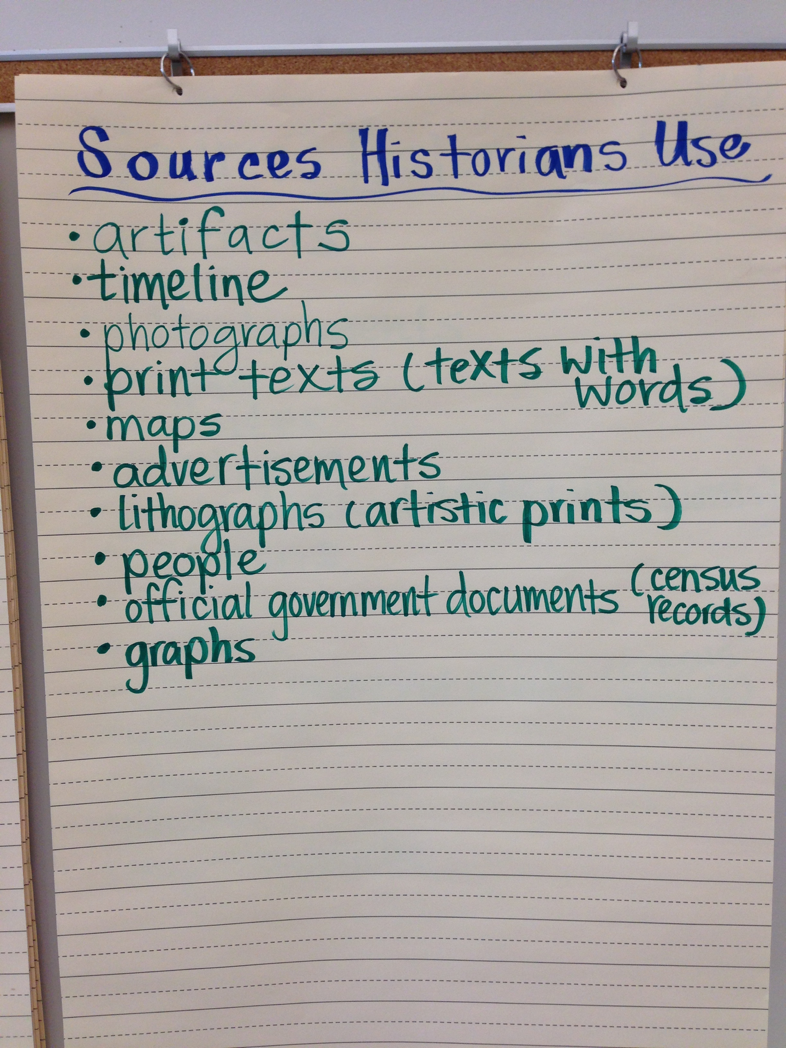 Sources Historians Use
• artifacts
• timeline
• photographs
• print texts (texts with
words)
• maps
• advertisements
• lithographs (artistic prints)
• people
• official government documents (census
records)
• graphs